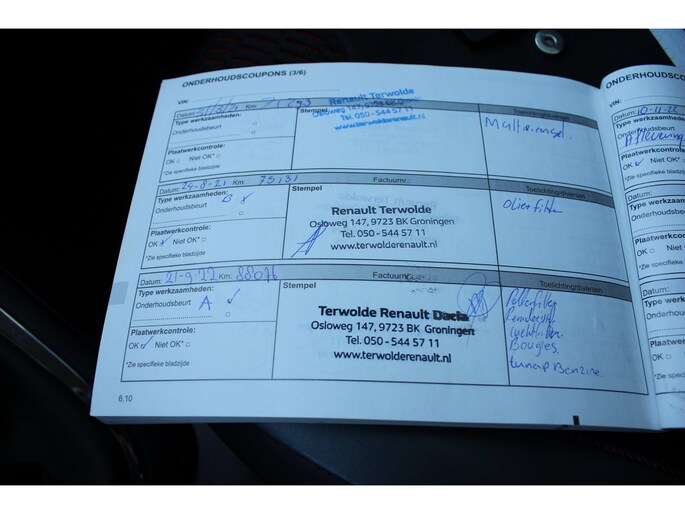 ONDERHOUDSCOUPONS (3/6)
VIN:
Datum: Km:
Type werkzaamheden:
Onderhoudsbeurt
Plaatwerkcontrole:
OK □ Niet OK* □
*Zie specifieke bladzijde
Stempel
Renault Terwolde
Osloweg 147, 9723 BK
Tel. 050 - 544 57 11
www.terwolderenault.nl
Datum: 24-8-21 Km: 75131
Factuurnr.
Type werkzaamheden:
Onderhoudsbeurt B
Plaatwerkcontrole:
OK Niet OK* □
*Zie specifieke bladzijde
Stempel
Renault Terwolde
Osloweg 147, 9723 BK Groningen
Tel. 050 - 544 57 11
www.terwolderenault.nl
Toelichting/diversen
Oliefilter
Datum: 21-9-22 Km: 88076
Factuurnr.
Type werkzaamheden:
Onderhoudsbeurt A
Plaatwerkcontrole:
OK Niet OK* □
*Zie specifieke bladzijde
Stempel
Terwolde Renault Dacia
Osloweg 147, 9723 BK Groningen
Tel. 050 - 544 57 11
www.terwolderenault.nl
Toelichting/diversen
Pollenfilter
Luchtfilter
Bougies
tunap Benzine
6.10
ONDERHOUDSCOUPONS
VIN:
Datum: 10-11-22
Type werkzaamheden
Onderhoudsbeurt
Aflevering
Plaatwerkcontrole
OK Niet OK*
*Zie specifieke
Datum:
Type werkzaam
Onderhoudsbe
Plaatwerkcon
OK □ Niet OK
*Zie specifieke
Datum:
Type werkza
Onderhoudsb
Plaatwerkc
OK □ Niet
*Zie specifi